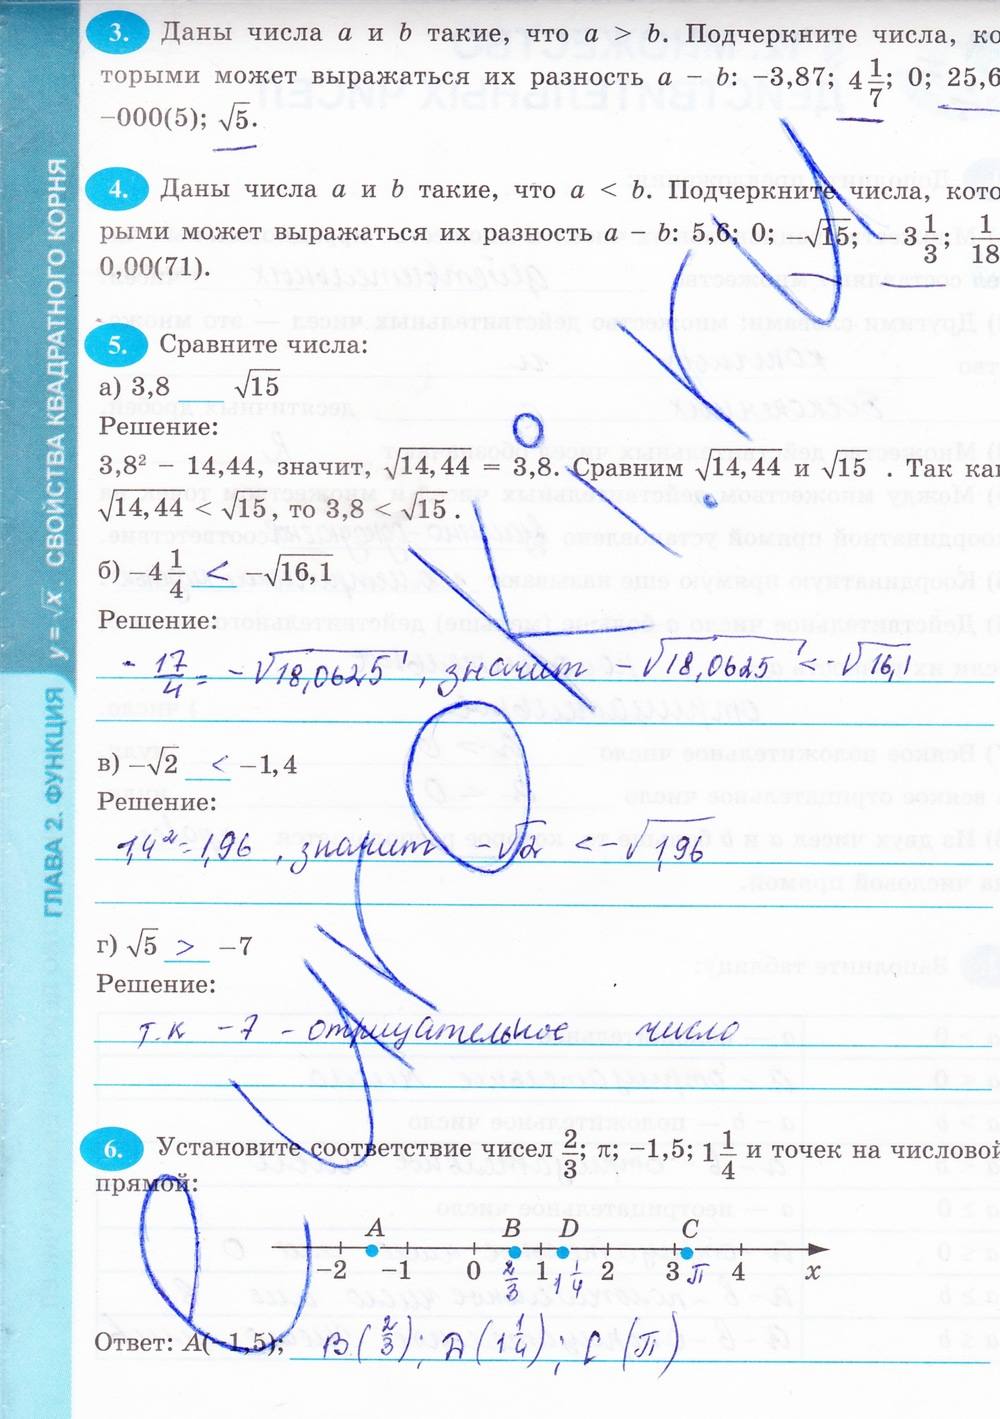 3. Даны числа a и b такие, что a > b. Подчеркните числа, ко
торыми может выражаться их разность a − b: −3,87; 4 1/7; 0; 25,6
−000(5); √5.
4. Даны числа a и b такие, что a < b. Подчеркните числа, кото
рыми может выражаться их разность a − b: 5,6; 0; −√15; −3 1/3; 1/18
0,00(71).
5. Сравните числа:
а) 3,8 ___ √15
Решение:
3,8² − 14,44, значит, √14,44 = 3,8. Сравним √14,44 и √15 . Так как
√14,44 < √15 , то 3,8 < √15 .
б) −4 1/4 < −√16,1
Решение:
- 17/4 = −√18,0625 , значит −√18,0625 < −√16,1
в) −√2 < −1,4
Решение:
1,4² = 1,96 , значит −√2 < −√1,96
г) √5 > −7
Решение:
т.к −7 − отрицательное число
6. Установите соответствие чисел 2/3; π; −1,5; 1 1/4 и точек на числовой
прямой:
A B D C
−2 −1 0 2/3 1 1 1/4 2 3 π 4 x
Ответ: A(−1,5); B(2/3); D(1 1/4); C(π)
ГЛАВА 2. ФУНКЦИЯ y = √x . СВОЙСТВА КВАДРАТНОГО КОРНЯ